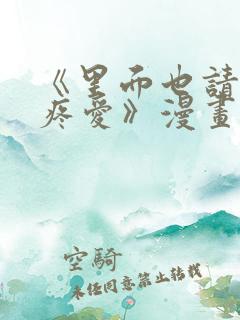 《里而也請
疼愛》漫畫
空騎
未经同意禁止转载